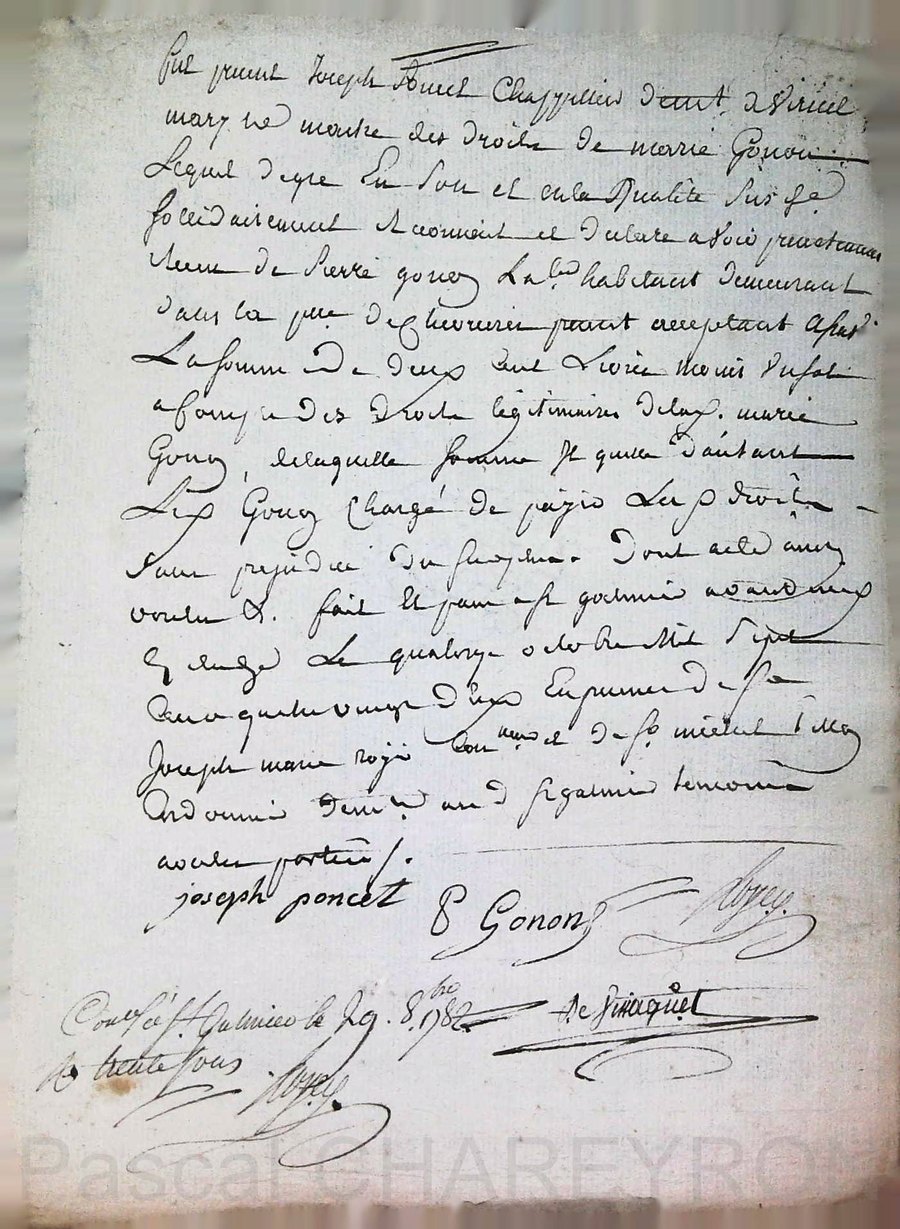 Fut present Joseph Poncet Chappellier demt. a Viricel
mary et maitre des droits de marie Gonon
Lequel de gre En Son et en la Qualité Sus de
Sollidairement Reconnoit et declare avoir presentement
Receu de Pierre gonon Labr. habitant demeurant
dans la psse. de Chevrieres present acceptant
La somme de deux Cent Livres moins
a Compte des droits légitimaires de lad. marie
Gonon, de laquelle somme Il quitte d'autant
Led. Gonon Chargé de payer Lesd. droits
Sans prejudice du Surplus. Dont acte ainsy
voulu &. fait Et passé a St galmier avant midy
Le quatorze octobre Mil Sept
Cent quatre vingt deux En presence de Sr
Joseph marie et de Sr. michel
Cordonnier demt. aud. St galmier temoins
avec les parties /.
joseph poncet
P Gonon
Royey
De Viraquet
Conlé à St. Galmier le 29. 8bre 1782
R trente sous
Royey
Pascal CHAREYRON